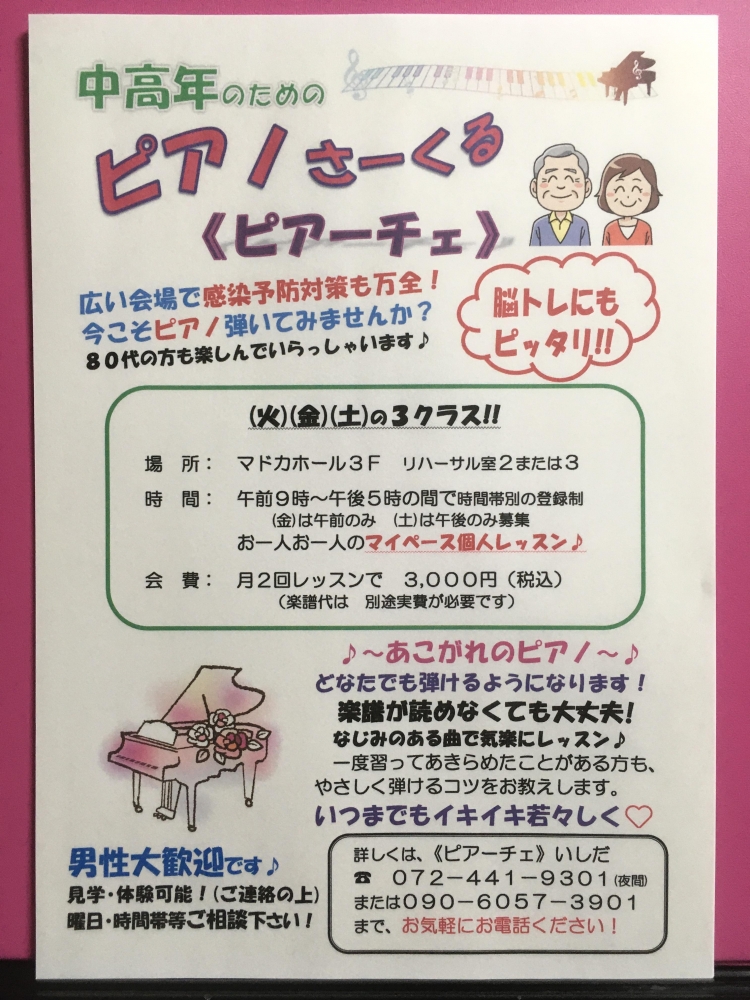 中高年のための
ピアノさーくる
《ピアーチェ》
広い会場で感染予防対策も万全！
今こそピアノ弾いてみませんか？
80代の方も楽しんでいらっしゃいます♪
脳トレにも
ピッタリ!!
(火)(金)(土)の３クラス!!
場　所：　マドカホール３Ｆ　リハーサル室２または３
時　間：　午前９時～午後５時の間で時間帯別の登録制
(金)は午前のみ　(土)は午後のみ募集
お一人お一人のマイペース個人レッスン♪
会　費：　月２回レッスンで　３,０００円（税込）
（楽譜代は　別途実費が必要です）
♪～あこがれのピアノ～♪
どなたでも弾けるようになります！
楽譜が読めなくても大丈夫!
なじみのある曲で気楽にレッスン♪
一度習ってあきらめたことがある方も、
やさしく弾けるコツをお教えします。
いつまでもイキイキ若々しく♡
男性大歓迎です♪
見学・体験可能！(ご連絡の上)
曜日・時間帯等ご相談下さい！
詳しくは、《ピアーチェ》いしだ
☎　０７２－４４１－９３０１(夜間)
または０９０－６０５７－３９０１
まで、お気軽にお電話ください！